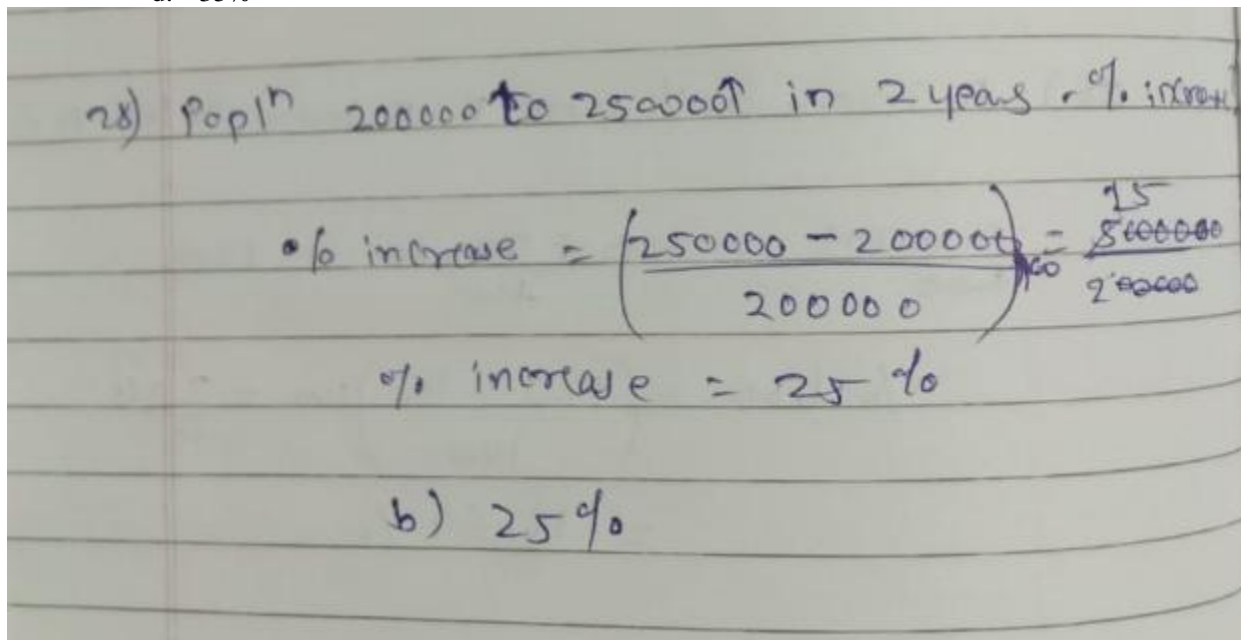 28) Popln 200000 to 250000↑ in 2 years . % increase
% increase = (250000 - 200000 / 200000) x100 = 5000000 / 200000
25
% increase = 25 %
b) 25%